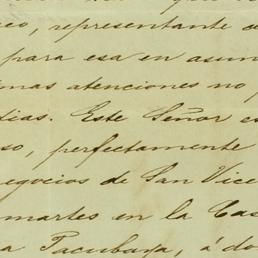 eo, representante de
para esa en asun
mas atenciones no p
dias. Este Señor es
so, perfectamente
negocios de San Vice
martes en la Cas
a Tacubaya, á do